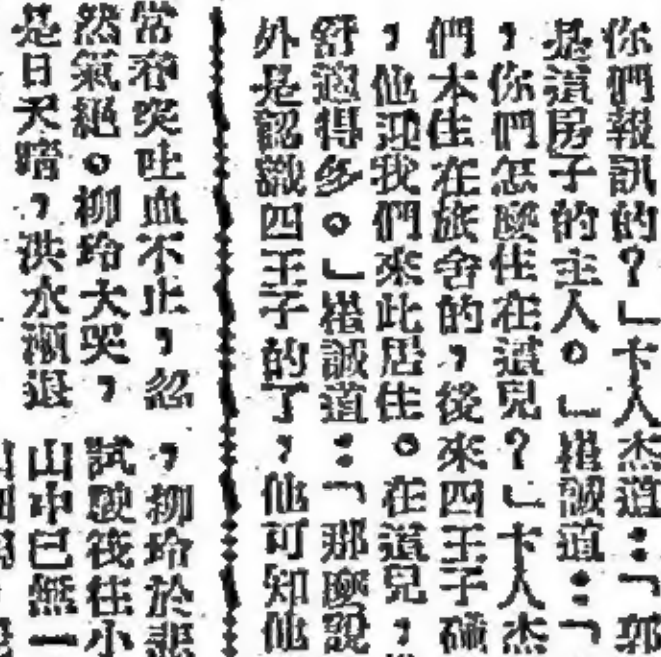 你們報訊的？」卞人杰道：「郭
是這房子的主人。」崔誠道：「
，你們怎麼住在這兒？」卞人杰
們本住在旅舍的，後來四王子碰
，他迎我們來此居住。在這兒，
舒適得多。」崔誠道：「那麼說
外是認識四王子的了，他可知他
常容突吐血不止，忽
然氣絕。柳玲大哭，
是日天暗，洪水漸退
，柳玲於悲
試驗筏往小
山中已無一